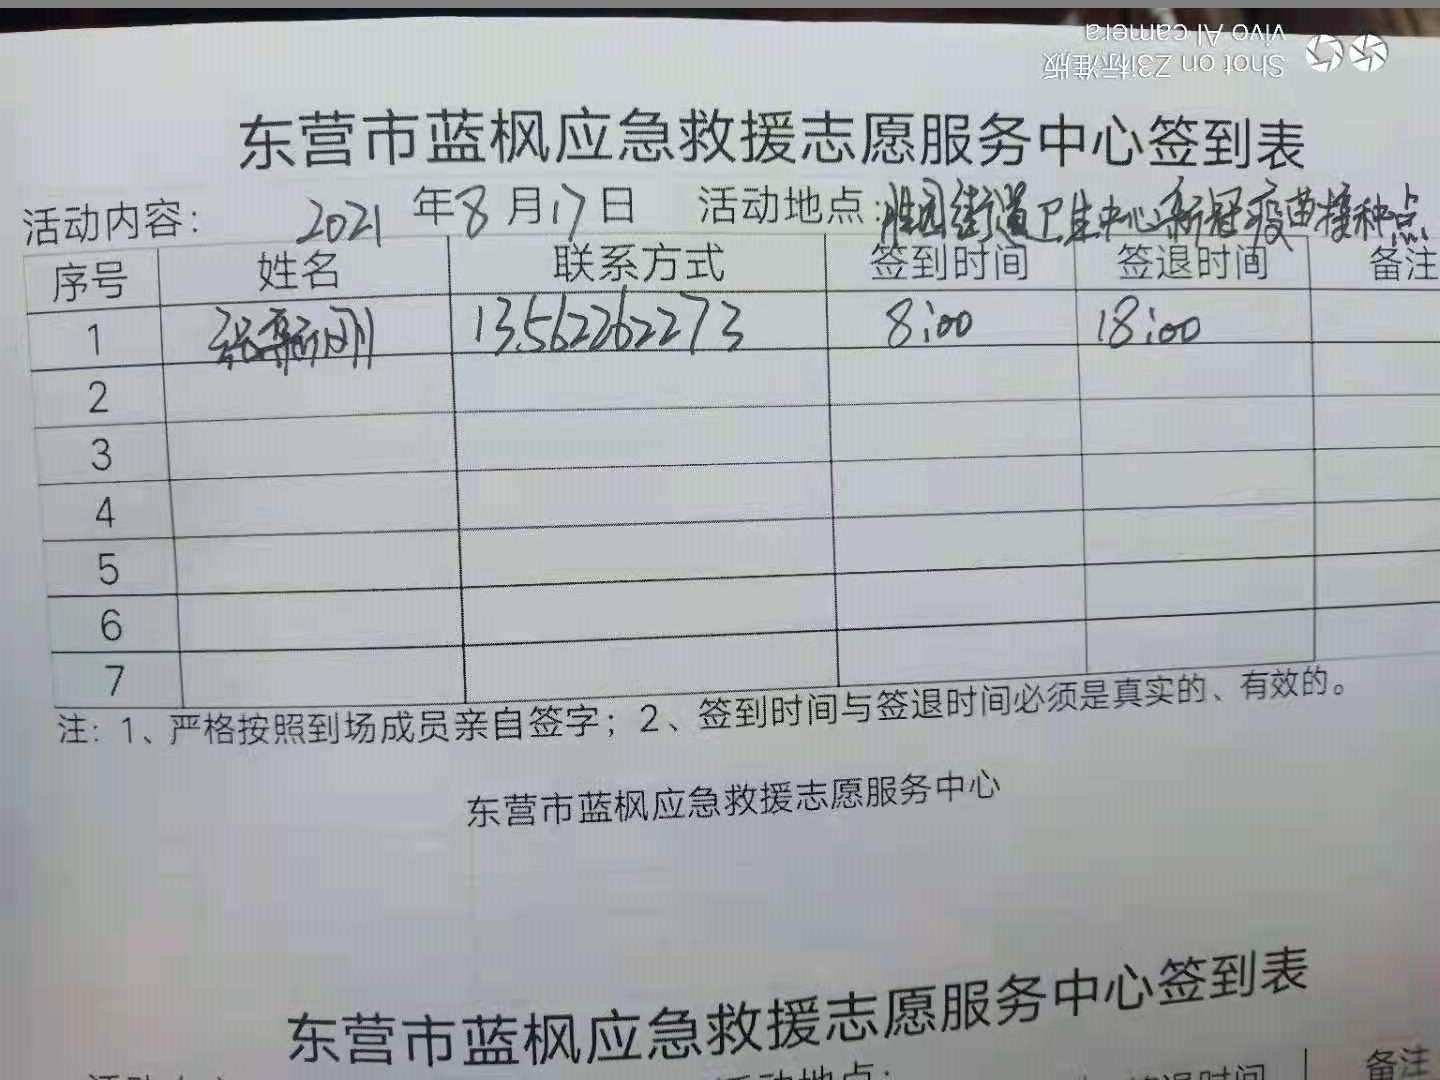 Shot on Z3i标准版
vivo AI camera
东营市蓝枫应急救援志愿服务中心签到表
活动内容： 2021 年8月17日 活动地点：胜园街道卫生中心新冠疫苗接种点
序号 姓名 联系方式 签到时间 签退时间 备注
1 张新刚 13562262273 8:00 18:00
2
3
4
5
6
7
注：1、严格按照到场成员亲自签字；2、签到时间与签退时间必须是真实的、有效的。
东营市蓝枫应急救援志愿服务中心
东营市蓝枫应急救援志愿服务中心签到表
活动地点：
签退时间 备注